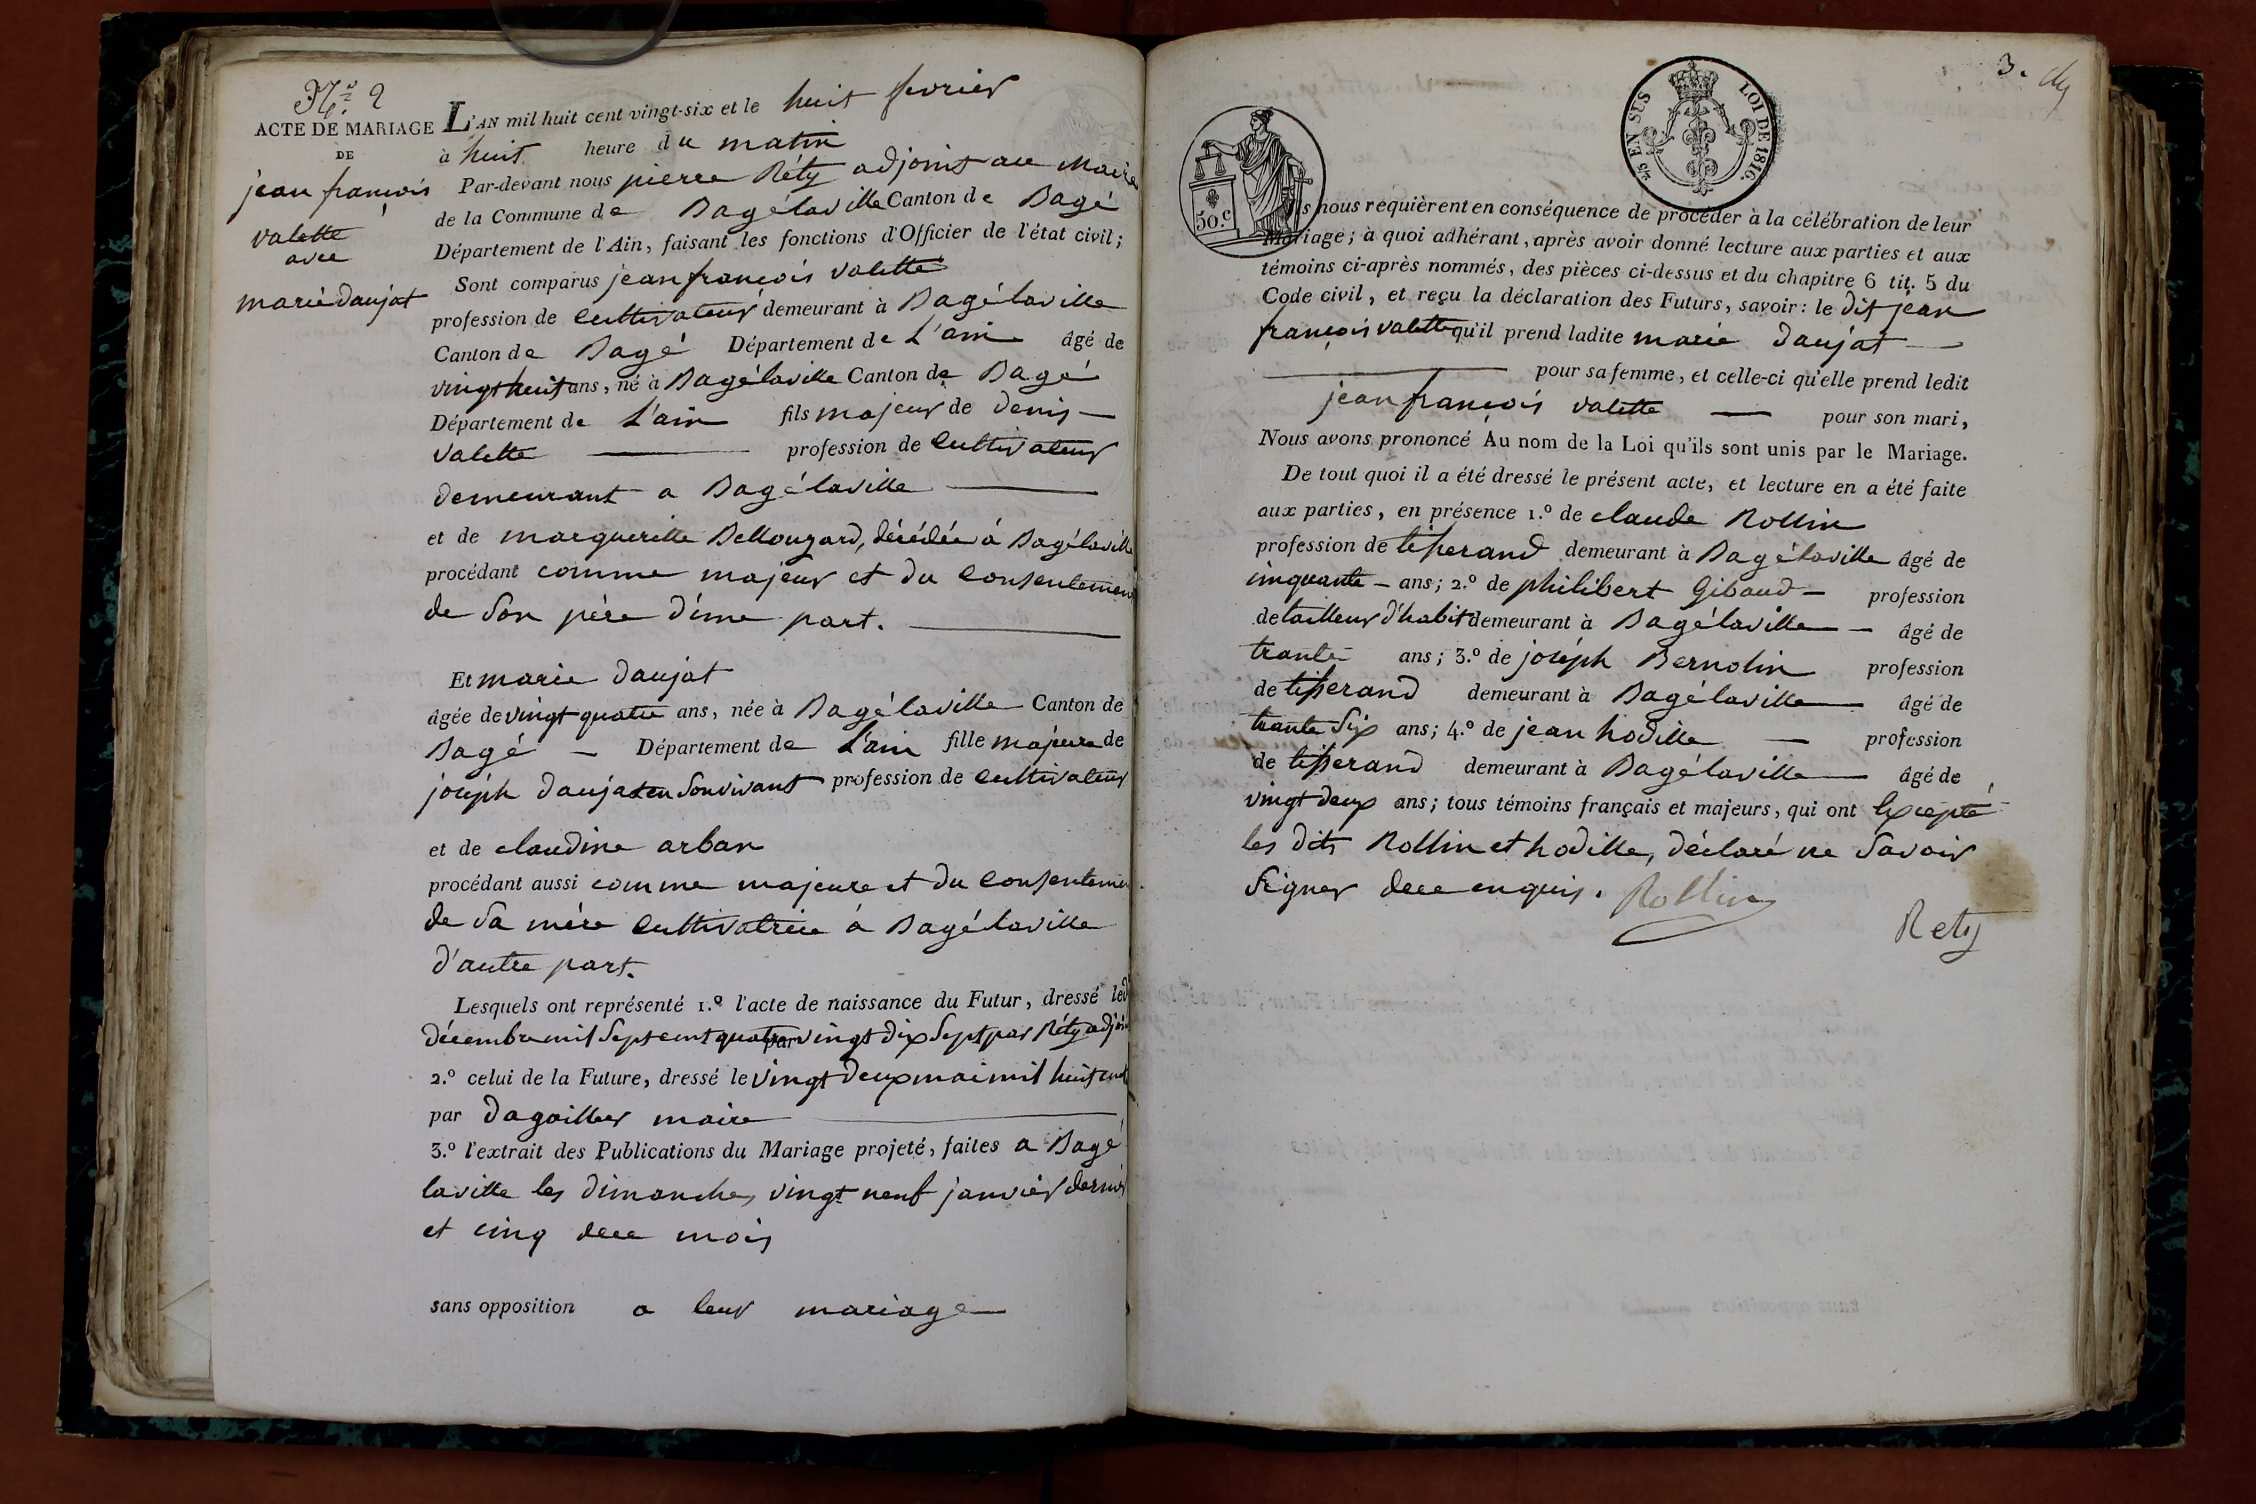 N.º 2
ACTE DE MARIAGE
DE
jean françois
valette
avec
marie daujat
L'AN mil huit cent vingt-six et le huit fevrier
à huit heure du matin
Par-devant nous pierre Réty adjoint au Maire
de la Commune de Bagélaville Canton de Bagé
Département de l'Ain, faisant les fonctions d'Officier de l'état civil;
Sont comparus jean françois valette
profession de cultivateur demeurant à Bagélaville
Canton de Bagé Département de L'ain âgé de
vingt huit ans, né à Bagélaville Canton de Bagé
Département de L'ain fils majeur de denis
valette profession de cultivateur
demeurant a Bagélaville
et de margueritte Bellouzard, décédée à Bagélaville
procédant comme majeur et du consentement
de son père d'une part.
Et marie daujat
âgée de vingt quatre ans, née à Bagélaville Canton de
Bagé Département de L'ain fille majeure de
joseph daujat en son vivant profession de cultivateur
et de claudine arban
procédant aussi comme majeure et du consentemen
de sa mère cultivatrice à Bagélaville
d'autre part.
Lesquels ont représenté 1.º l'acte de naissance du Futur, dressé le
décembre mil sept cent quatre vingt dix sept par Réty adjoin
par
2.º celui de la Future, dressé le vingt deux mai mil huit cent
par dagaillier maire
3.º l'extrait des Publications du Mariage projeté, faites a Bagé
laville les dimanches vingt neuf janvier dernier
et cinq du mois
sans opposition a leur mariage
3.
50.c
25 EN SUS LOI DE 1816.
nous requièrent en conséquence de procéder à la célébration de leur
Mariage; à quoi adhérant, après avoir donné lecture aux parties et aux
témoins ci-après nommés, des pièces ci-dessus et du chapitre 6 tit. 5 du
Code civil, et reçu la déclaration des Futurs, savoir: le dit jean
françois valette qu'il prend ladite marie daujat
pour sa femme, et celle-ci qu'elle prend ledit
jean françois valette pour son mari,
Nous avons prononcé Au nom de la Loi qu'ils sont unis par le Mariage.
De tout quoi il a été dressé le présent acte, et lecture en a été faite
aux parties, en présence 1.º de claude Rollin
profession de tisserand demeurant à Bagélaville âgé de
cinquante ans; 2.º de philibert Gibaud profession
de tailleur d'habit demeurant à Bagélaville âgé de
trante ans; 3.º de joseph Bernolin profession
de tisserand demeurant à Bagélaville âgé de
trante six ans; 4.º de jean hodille profession
de tisserand demeurant à Bagélaville âgé de
vingt deux ans; tous témoins français et majeurs, qui ont Excepté
les dits Rollin et hodille, déclaré ne savoir
signer de ce enquis. Rollin
Rety